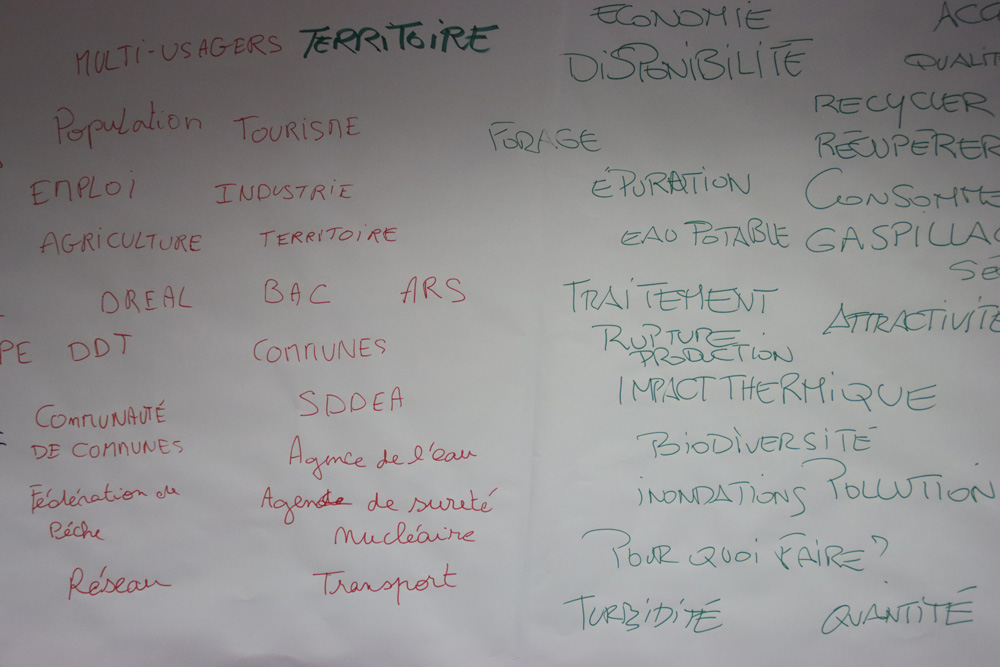 MULTI-USAGERS TERRITOIRE
Population TOURISME
EMPLOI INDUSTRIE
AGRICULTURE TERRITOIRE
DREAL BAC ARS
PE DDT COMMUNES
COMMUNAUTÉ
DE COMMUNES
SDDEA
Agence de l'eau
Fédération de
Pêche
Agence de sureté
Nucléaire
Réseau Transport
ECONOMIE ACC
DISPONIBILITÉ QUALIT
RECYCLER
FORAGE RÉCUPÉRER
ÉPURATION CONSOMME
EAU POTABLE GASPILLAG
SÉ
TRAITEMENT ATTRACTIVITÉ
RUPTURE
PRODUCTION
IMPACT THERMIQUE
BIODIVERSITÉ
INONDATIONS POLLUTION
POUR QUOI FAIRE?
TURBIDITÉ QUANTITÉ